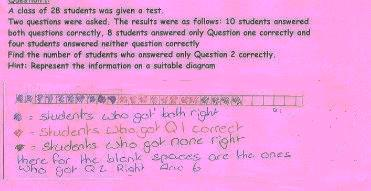 A class of 28 students was given a test.
Two questions were asked. The results were as follows: 10 students answered
both questions correctly, 8 students answered only Question one correctly and
four students answered neither question correctly
Find the number of students who answered only Question 2 correctly.
Hint: Represent the information on a suitable diagram
= students who got both right
= students who got Q1 correct
= students who got none right
there for the blank spaces are the ones
who got Q2 Right Ans 6